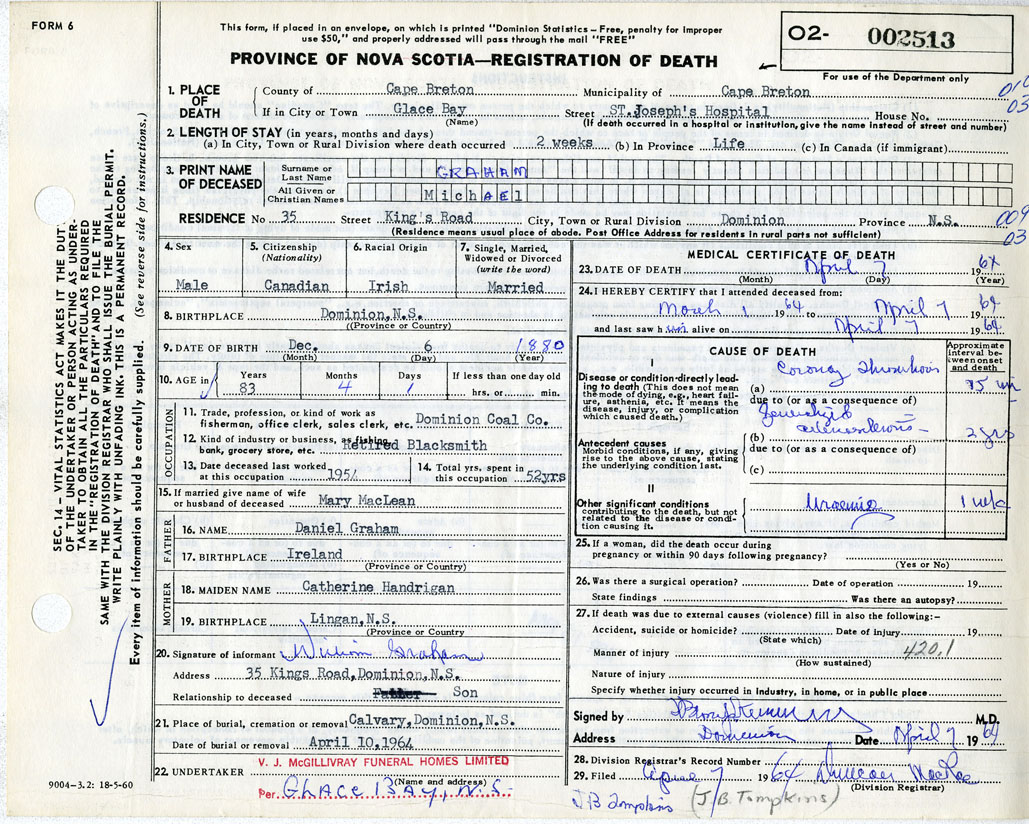 FORM 6
This form, if placed in an envelope, on which is printed "Dominion Statistics – Free, penalty for improper
use $50," and properly addressed will pass through the mail "FREE"
02- 002513
For use of the Department only
PROVINCE OF NOVA SCOTIA—REGISTRATION OF DEATH
SEC. 14 – VITAL STATISTICS ACT MAKES IT THE DUTY
OF THE UNDERTAKER OR PERSON ACTING AS UNDER-
TAKER TO OBTAIN ALL THE PARTICULARS REQUIRED
IN THE "REGISTRATION OF DEATH" AND TO FILE THE
SAME WITH THE DIVISION REGISTRAR WHO SHALL ISSUE THE BURIAL PERMIT.
WRITE PLAINLY WITH UNFADING INK. THIS IS A PERMANENT RECORD.
Every item of information should be carefully supplied. (See reverse side for instructions.)
1. PLACE OF DEATH
County of Cape Breton Municipality of Cape Breton
If in City or Town Glace Bay Street ST.Joseph's Hospital House No.
(Name) (If death occurred in a hospital or institution, give the name instead of street and number)
2. LENGTH OF STAY (in years, months and days)
(a) In City, Town or Rural Division where death occurred 2 weeks (b) In Province Life (c) In Canada (if immigrant)
3. PRINT NAME OF DECEASED
Surname or Last Name GRAHAM
All Given or Christian Names MichAEl
RESIDENCE No 35 Street King's Road City, Town or Rural Division Dominion Province N.S.
009
03
(Residence means usual place of abode. Post Office Address for residents in rural parts not sufficient)
4. Sex
Male
5. Citizenship
(Nationality)
Canadian
6. Racial Origin
Irish
7. Single, Married,
Widowed or Divorced
(write the word)
Married
8. BIRTHPLACE Dominion,N.S.
(Province or Country)
9. DATE OF BIRTH Dec. 6 1880
(Month) (Day) (Year)
10. AGE in Years Months Days If less than one day old
83 4 1 hrs. or min.
OCCUPATION
11. Trade, profession, or kind of work as
fisherman, office clerk, sales clerk, etc. Dominion Coal Co.
12. Kind of industry or business, as fishing,
bank, grocery store, etc. Retired Blacksmith
13. Date deceased last worked
at this occupation 195
14. Total yrs. spent in
this occupation 52yrs
15. If married give name of wife
or husband of deceased Mary MacLean
FATHER
16. NAME Daniel Graham
17. BIRTHPLACE Ireland
(Province or Country)
MOTHER
18. MAIDEN NAME Catherine Handrigan
19. BIRTHPLACE Lingan,N.S.
(Province or Country)
20. Signature of informant William Graham
Address 35 Kings Road,Dominion,N.S.
Relationship to deceased Father Son
21. Place of burial, cremation or removal Calvary,Dominion,N.S.
Date of burial or removal April 10,1964
V. J. McGILLIVRAY FUNERAL HOMES LIMITED
22. UNDERTAKER (Name and address)
Per. GLACE BAY, N.S.
9004–3.2: 18-5-60
MEDICAL CERTIFICATE OF DEATH
23. DATE OF DEATH April 7 1964
(Month) (Day) (Year)
24. I HEREBY CERTIFY that I attended deceased from:
March 1 1964 to April 7 1964
and last saw him alive on April 7 1964
CAUSE OF DEATH
Approximate interval between onset and death
I
Disease or condition directly lead-
ing to death (This does not mean
the mode of dying, e.g., heart fail-
ure, asthenia, etc. It means the
disease, injury, or complication
which caused death.)
(a) Coronary Thrombosis 15 min
due to (or as a consequence of)
Antecedent causes
Morbid conditions, if any, giving
rise to the above cause, stating
the underlying condition last.
(b) 2 yrs
due to (or as a consequence of)
(c)
II
Other significant conditions
contributing to the death, but not
related to the disease or condi-
tion causing it.
Uraemia 1 wk
25. If a woman, did the death occur during
pregnancy or within 90 days following pregnancy?
(Yes or No)
26. Was there a surgical operation? Date of operation 19
State findings Was there an autopsy?
27. If death was due to external causes (violence) fill in also the following:–
Accident, suicide or homicide? Date of injury 19
(State which)
Manner of injury 420.1
(How sustained)
Nature of injury
Specify whether injury occurred in Industry, in home, or in public place
Signed by M.D.
Address Dominion Date April 7 1964
28. Division Registrar's Record Number
29. Filed April 7 1964 Duncan MacRae
(Division Registrar)
JB Tompkins (J.B. Tompkins)